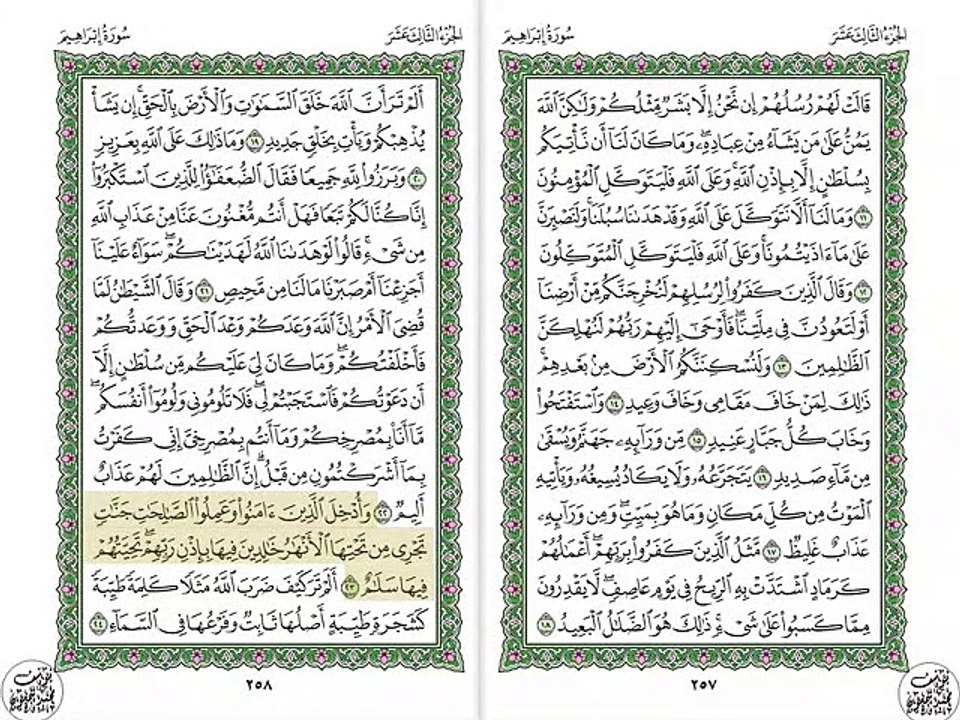 الجزء الثالث عشر
سورة إبراهيم
قَالَتْ لَهُمْ رُسُلُهُمْ إِن نَّحْنُ إِلَّا بَشَرٌ مِّثْلُكُمْ وَلَٰكِنَّ ٱللَّهَ
يَمُنُّ عَلَىٰ مَن يَشَآءُ مِنْ عِبَادِهِۦ ۖ وَمَا كَانَ لَنَآ أَن نَّأْتِيَكُم
بِسُلْطَٰنٍ إِلَّا بِإِذْنِ ٱللَّهِ ۚ وَعَلَى ٱللَّهِ فَلْيَتَوَكَّلِ ٱلْمُؤْمِنُونَ
١١ وَمَا لَنَآ أَلَّا نَتَوَكَّلَ عَلَى ٱللَّهِ وَقَدْ هَدَىٰنَا سُبُلَنَا ۚ وَلَنَصْبِرَنَّ
عَلَىٰ مَآ ءَاذَيْتُمُونَا ۚ وَعَلَى ٱللَّهِ فَلْيَتَوَكَّلِ ٱلْمُتَوَكِّلُونَ
١٢ وَقَالَ ٱلَّذِينَ كَفَرُوا۟ لِرُسُلِهِمْ لَنُخْرِجَنَّكُم مِّنْ أَرْضِنَآ
أَوْ لَتَعُودُنَّ فِى مِلَّتِنَا ۖ فَأَوْحَىٰٓ إِلَيْهِمْ رَبُّهُمْ لَنُهْلِكَنَّ
ٱلظَّٰلِمِينَ ١٣ وَلَنُسْكِنَنَّكُمُ ٱلْأَرْضَ مِنۢ بَعْدِهِمْ ۚ
ذَٰلِكَ لِمَنْ خَافَ مَقَامِى وَخَافَ وَعِيدِ ١٤ وَٱسْتَفْتَحُوا۟
وَخَابَ كُلُّ جَبَّارٍ عَنِيدٍ ١٥ مِّن وَرَآئِهِۦ جَهَنَّمُ وَيُسْقَىٰ
مِن مَّآءٍ صَدِيدٍ ١٦ يَتَجَرَّعُهُۥ وَلَا يَكَادُ يُسِيغُهُۥ وَيَأْتِيهِ
ٱلْمَوْتُ مِن كُلِّ مَكَانٍ وَمَا هُوَ بِمَيِّتٍ ۖ وَمِن وَرَآئِهِۦ
عَذَابٌ غَلِيظٌ ١٧ مَّثَلُ ٱلَّذِينَ كَفَرُوا۟ بِرَبِّهِمْ ۖ أَعْمَٰلُهُمْ
كَرَمَادٍ ٱشْتَدَّتْ بِهِ ٱلرِّيحُ فِى يَوْمٍ عَاصِفٍ ۖ لَّا يَقْدِرُونَ
مِمَّا كَسَبُوا۟ عَلَىٰ شَىْءٍ ۚ ذَٰلِكَ هُوَ ٱلضَّلَٰلُ ٱلْبَعِيدُ ١٨
٢٥٧
الجزء الثالث عشر
سورة إبراهيم
أَلَمْ تَرَ أَنَّ ٱللَّهَ خَلَقَ ٱلسَّمَٰوَٰتِ وَٱلْأَرْضَ بِٱلْحَقِّ ۚ إِن يَشَأْ
يُذْهِبْكُمْ وَيَأْتِ بِخَلْقٍ جَدِيدٍ ١٩ وَمَا ذَٰلِكَ عَلَى ٱللَّهِ بِعَزِيزٍ
٢٠ وَبَرَزُوا۟ لِلَّهِ جَمِيعًا فَقَالَ ٱلضُّعَفَٰٓؤُا۟ لِلَّذِينَ ٱسْتَكْبَرُوٓا۟
إِنَّا كُنَّا لَكُمْ تَبَعًا فَهَلْ أَنتُم مُّغْنُونَ عَنَّا مِنْ عَذَابِ ٱللَّهِ
مِن شَىْءٍ ۚ قَالُوا۟ لَوْ هَدَىٰنَا ٱللَّهُ لَهَدَيْنَٰكُمْ ۖ سَوَآءٌ عَلَيْنَآ
أَجَزِعْنَآ أَمْ صَبَرْنَا مَا لَنَا مِن مَّحِيصٍ ٢١ وَقَالَ ٱلشَّيْطَٰنُ لَمَّا
قُضِىَ ٱلْأَمْرُ إِنَّ ٱللَّهَ وَعَدَكُمْ وَعْدَ ٱلْحَقِّ وَوَعَدتُّكُمْ
فَأَخْلَفْتُكُمْ ۖ وَمَا كَانَ لِىَ عَلَيْكُم مِّن سُلْطَٰنٍ إِلَّآ
أَن دَعَوْتُكُمْ فَٱسْتَجَبْتُمْ لِى ۖ فَلَا تَلُومُونِى وَلُومُوٓا۟ أَنفُسَكُم ۖ
مَّآ أَنَا۠ بِمُصْرِخِكُمْ وَمَآ أَنتُم بِمُصْرِخِىَّ ۖ إِنِّى كَفَرْتُ
بِمَآ أَشْرَكْتُمُونِ مِن قَبْلُ ۗ إِنَّ ٱلظَّٰلِمِينَ لَهُمْ عَذَابٌ
أَلِيمٌ ٢٢ وَأُدْخِلَ ٱلَّذِينَ ءَامَنُوا۟ وَعَمِلُوا۟ ٱلصَّٰلِحَٰتِ جَنَّٰتٍ
تَجْرِى مِن تَحْتِهَا ٱلْأَنْهَٰرُ خَٰلِدِينَ فِيهَا بِإِذْنِ رَبِّهِمْ ۖ تَحِيَّتُهُمْ
فِيهَا سَلَٰمٌ ٢٣ أَلَمْ تَرَ كَيْفَ ضَرَبَ ٱللَّهُ مَثَلًا كَلِمَةً طَيِّبَةً
كَشَجَرَةٍ طَيِّبَةٍ أَصْلُهَا ثَابِتٌ وَفَرْعُهَا فِى ٱلسَّمَآءِ ٢٤
٢٥٨